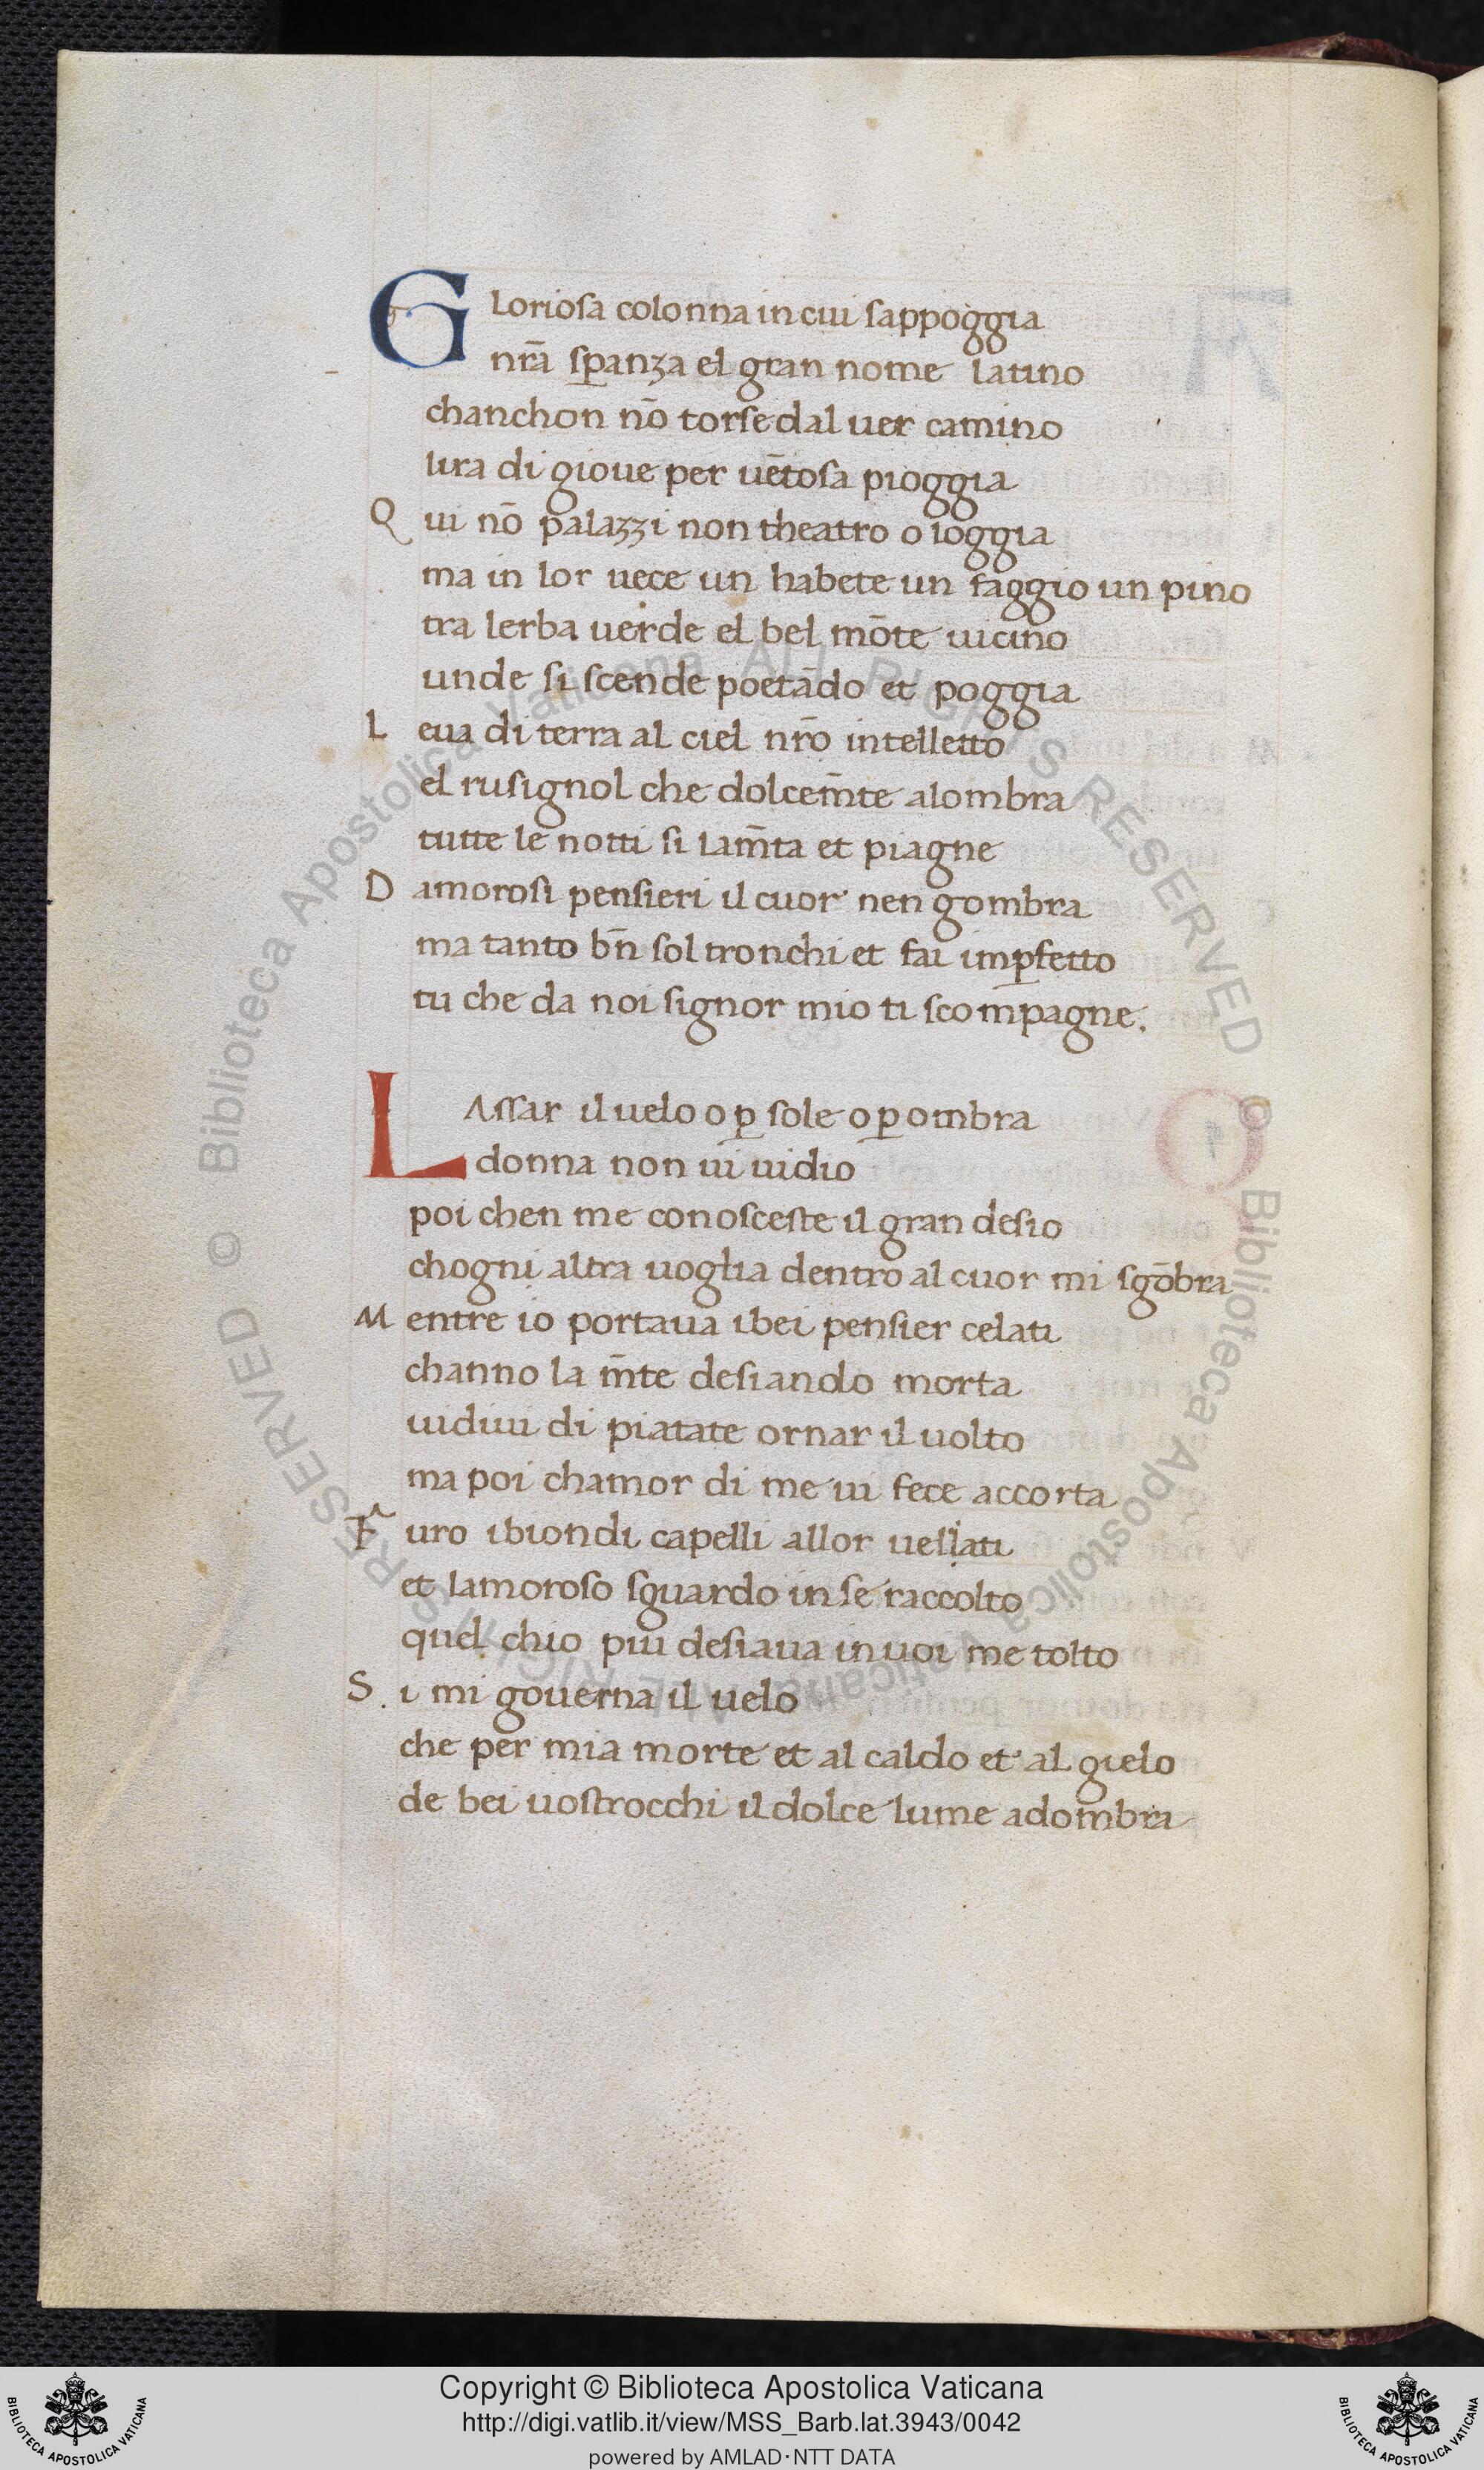 Gloriosa colonna in cui sappoggia
nr̄a sꝑanza el gran nome latino
chanchon nō torse dal uer camino
lira di gioue per uētosa pioggia
Qui nō palazzi non theatro o loggia
ma in lor uece un habete un faggio un pino
tra lerba uerde el bel mōte uicino
unde si scende poetādo et poggia
Leua di terra al ciel nr̄o intelletto
el rusignol che dolcem̄te alombra
tutte le notti si lam̄ta et piagne
Damorosi pensieri il cuor nen gombra
ma tanto bn̄ sol tronchi et fai imꝑfetto
tu che da noi signor mio ti scompagne.
LAssar il uelo o ꝑ sole o ꝑ ombra
donna non ui uidio
poi chen me conosceste il gran desio
chogni altra uoglia dentro al cuor mi sgōbra
Mentre io portaua ibei pensier celati
channo la m̄te desiando morta
uidiui di piatate ornar il uolto
ma poi chamor di me ui fece accorta
Furo ibiondi capelli allor uellati
et lamoroso sguardo in se raccolto
quel chio piu desiaua in uoi me tolto
Si mi gouerna il uelo
che per mia morte et al caldo et al gielo
de bei uostrocchi il dolce lume adombra
© Biblioteca Apostolica Vaticana ALL RIGHTS RESERVED
© Biblioteca Apostolica Vaticana ALL RIGHTS RESERVED
Copyright © Biblioteca Apostolica Vaticana
http://digi.vatlib.it/view/MSS_Barb.lat.3943/0042
powered by AMLAD·NTT DATA
BIBLIOTECA APOSTOLICA VATICANA
BIBLIOTECA APOSTOLICA VATICANA